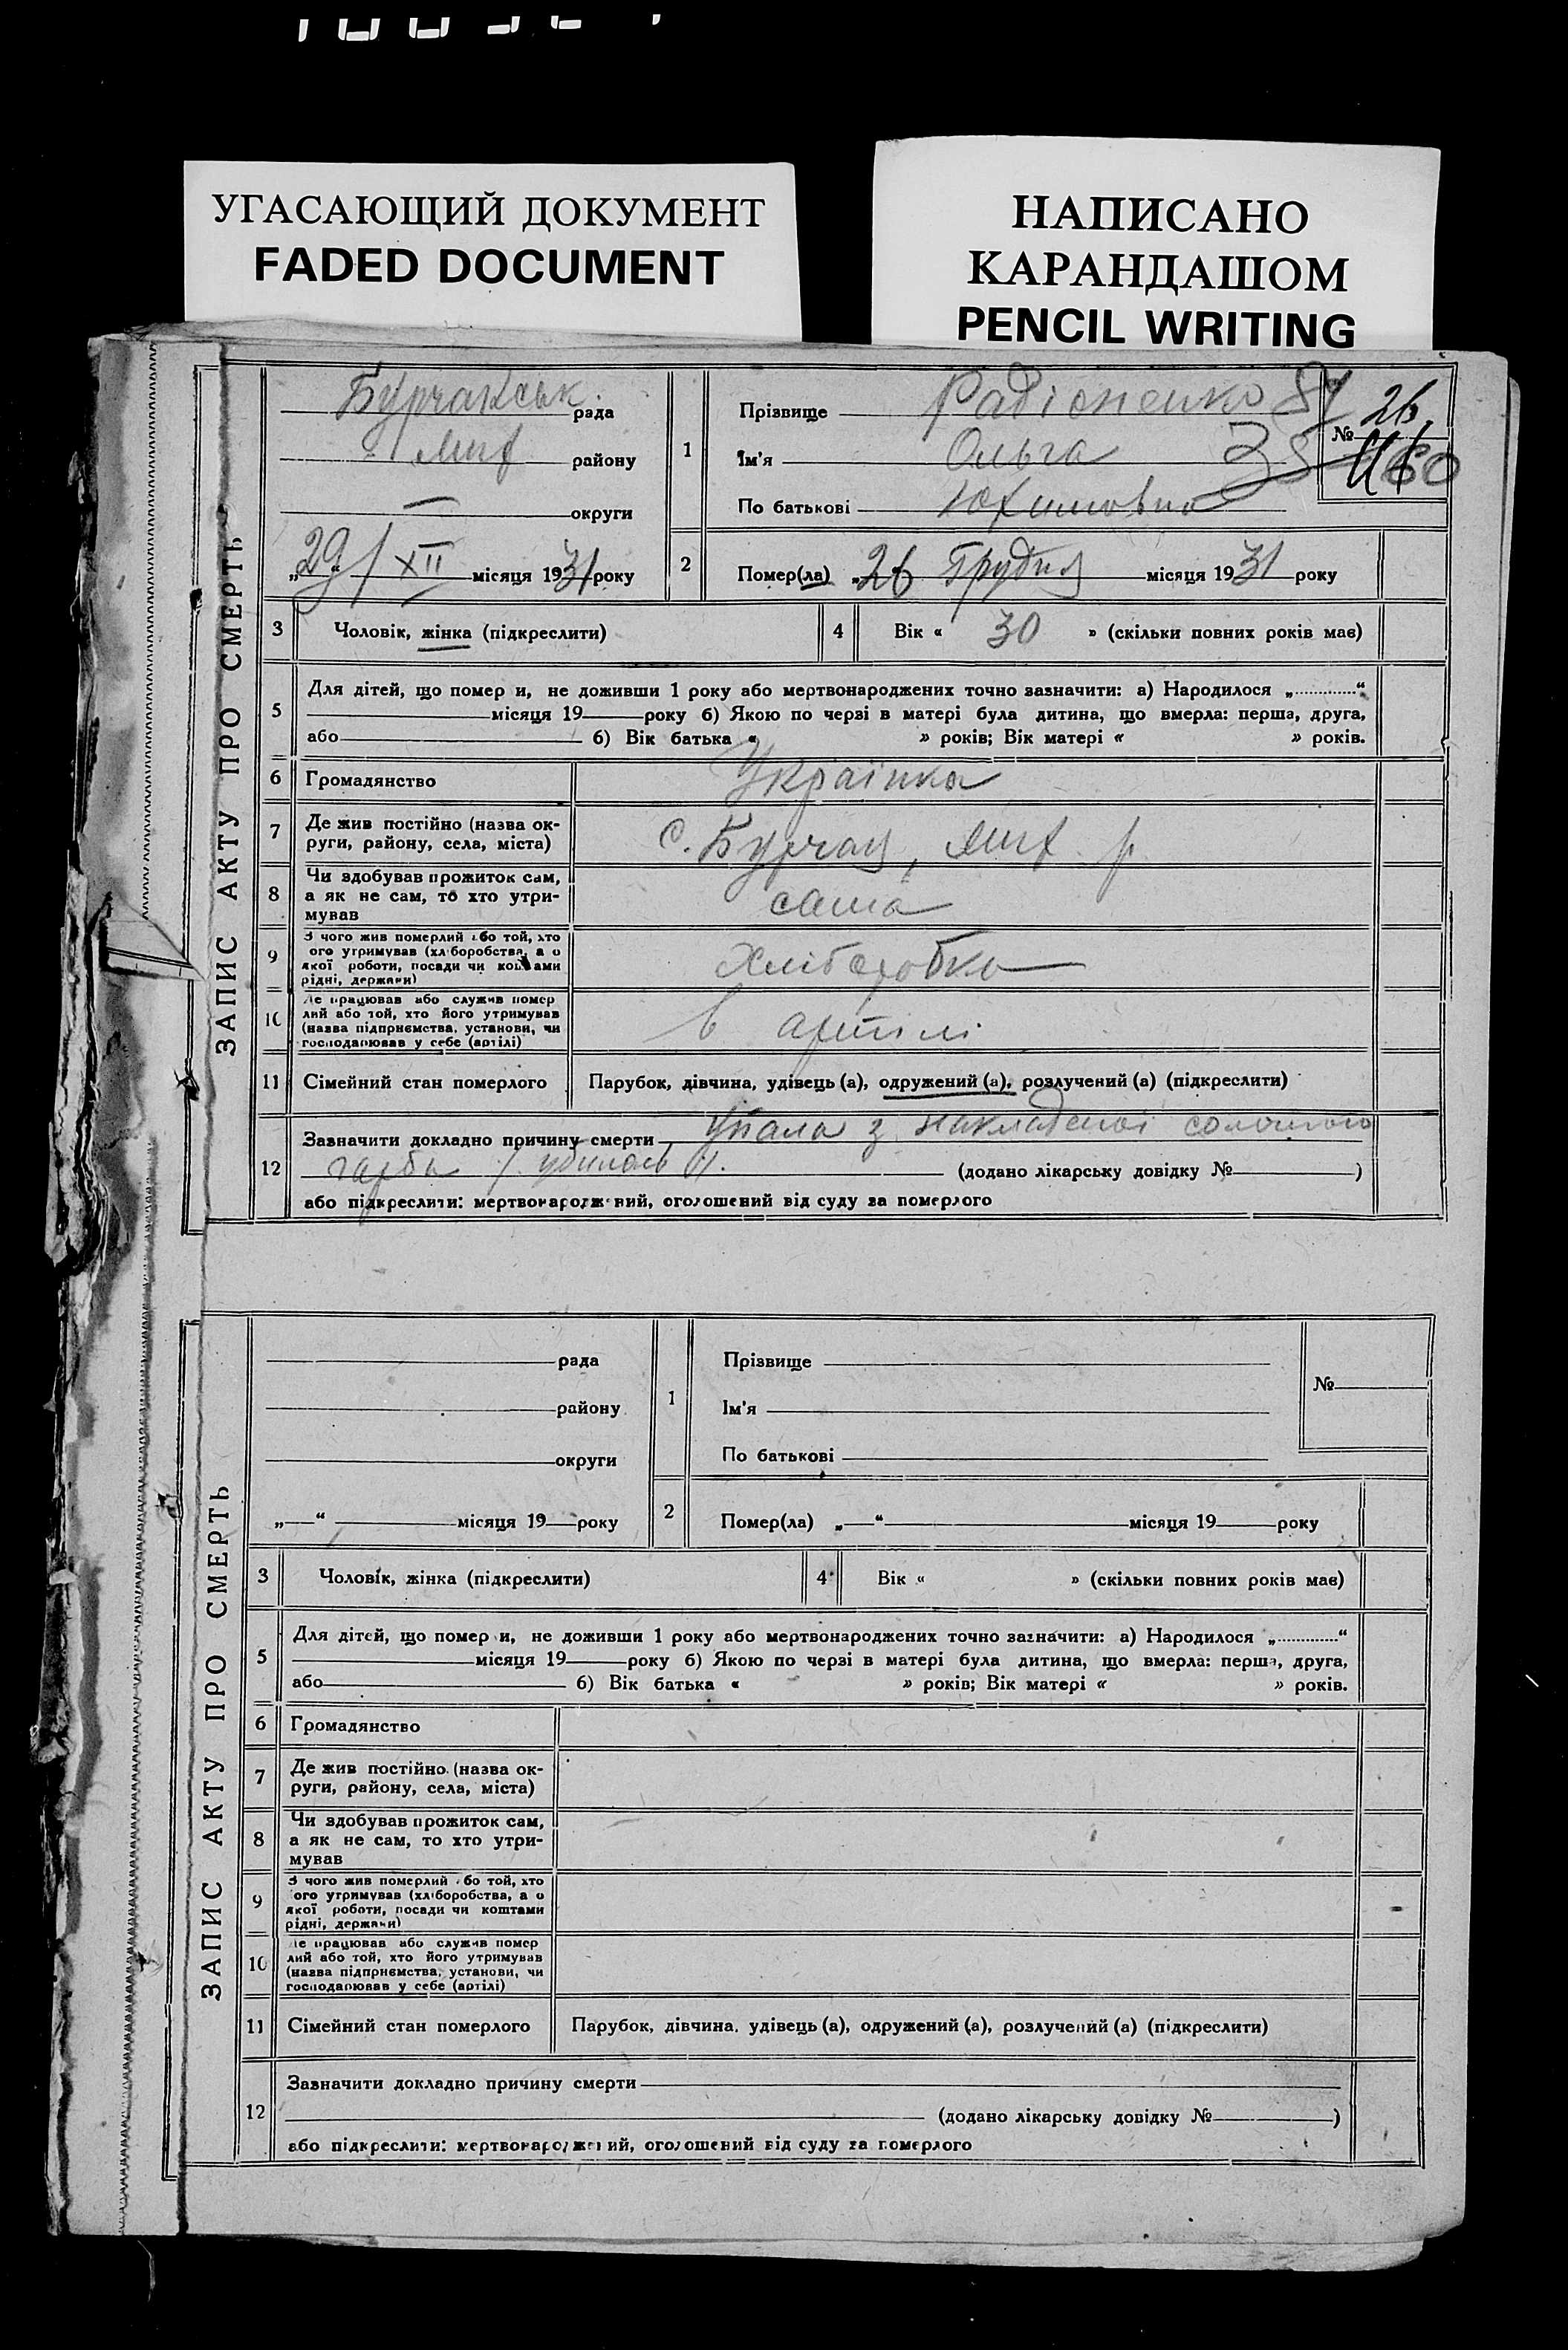 УГАСАЮЩИЙ ДОКУМЕНТ
FADED DOCUMENT
НАПИСАНО
КАРАНДАШОМ
PENCIL WRITING
ЗАПИС АКТУ ПРО СМЕРТЬ
Бурчакськ. рада
Мих району
— округи
„29“ / XII місяця 1931 року
1
Прізвище Радіоненко 84
Ім'я Ольга
По батькові Юхимовна
№ 26
2
Помер(ла) „26 Грудня місяця 1931 року
3 Чоловік, жінка (підкреслити)
4 Вік « 30 » (скільки повних років має)
5 Для дітей, що помер и, не доживши 1 року або мертвонароджених точно зазначити: а) Народилося „............“
місяця 19 року б) Якою по черзі в матері була дитина, що вмерла: перша, друга,
або 6) Вік батька « » років; Вік матері « » років.
6 Громадянство Українка
7 Де жив постійно (назва ок-
руги, району, села, міста) с. Бурчак, Мих. р.
8 Чи здобував прожиток сам,
а як не сам, то хто утри-
мував сама
9 З чого жив померлий або той, хто
ого утримував (хліборобства, а о
якої роботи, посади чи коштами
рідні, держави) Хліборобка
10 Де працював або служив помер
лий або той, хто його утримував
(назва підприємства, установи, чи
господарював у себе (артілі) в артілі
11 Сімейний стан померлого Парубок, дівчина, удівець (а), одружений (а), розлучений (а) (підкреслити)
12 Зазначити докладно причину смерти Упала з накладеної соломою
гарби / убилась /. (додано лікарську довідку № )
або підкреслити: мертвонароджений, оголошений від суду за померлого
ЗАПИС АКТУ ПРО СМЕРТЬ
рада
району
округи
„—“ місяця 19 року
1
Прізвище
Ім'я
По батькові
№
2
Помер(ла) „—“ місяця 19 року
3 Чоловік, жінка (підкреслити)
4 Вік « » (скільки повних років має)
5 Для дітей, що помер и, не доживши 1 року або мертвонароджених точно зазначити: а) Народилося „............“
місяця 19 року б) Якою по черзі в матері була дитина, що вмерла: перша, друга,
або 6) Вік батька « » років; Вік матері « » років.
6 Громадянство
7 Де жив постійно (назва ок-
руги, району, села, міста)
8 Чи здобував прожиток сам,
а як не сам, то хто утри-
мував
9 З чого жив померлий або той, хто
ого утримував (хліборобства, а о
якої роботи, посади чи коштами
рідні, держави)
10 Де працював або служив помер
лий або той, хто його утримував
(назва підприємства, установи, чи
господарював у себе (артілі)
11 Сімейний стан померлого Парубок, дівчина, удівець (а), одружений (а), розлучений (а) (підкреслити)
12 Зазначити докладно причину смерти
(додано лікарську довідку № )
або підкреслити: мертвонароджений, оголошений від суду за померлого